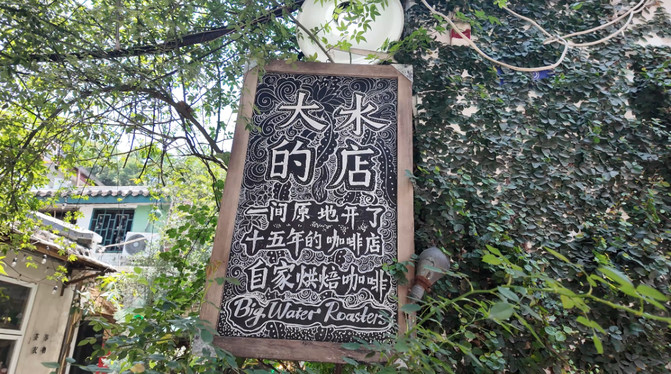 大水的店
一间原地开了
十五年的咖啡店
自家烘焙咖啡
Big Water Roasters